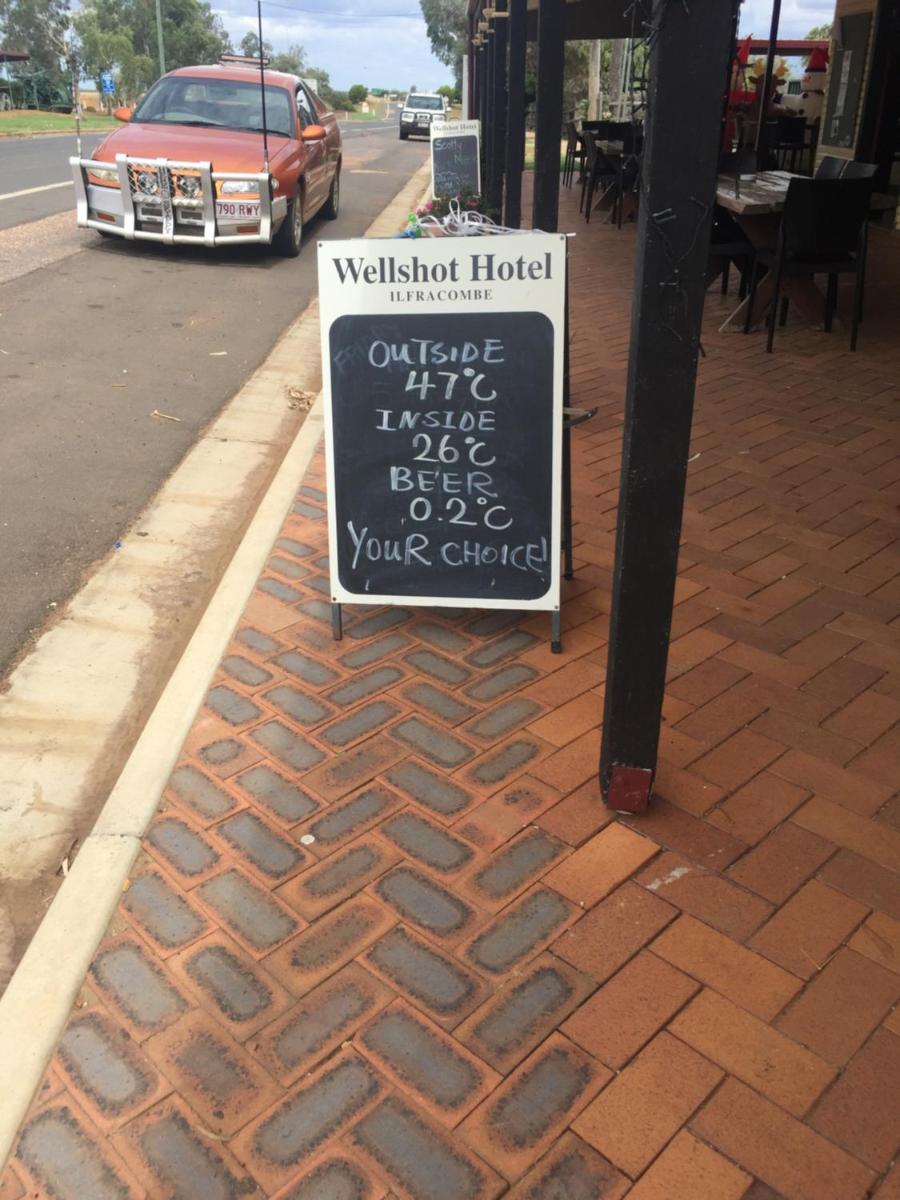 Wellshot Hotel
ILFRACOMBE
OUTSIDE
47°C
INSIDE
26°C
BEER
0.2°C
YOUR CHOICE!
Wellshot Hotel
Scotty
790 RWY